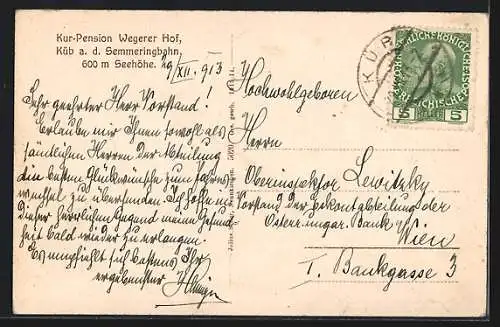 Kur-Pension Wegerer Hof,
Küb a. d. Semmeringbahn,
600 m Seehöhe.
29/XII. 913
Sehr geehrter Herr Vorstand!
Erlaube mir Ihnen sowohl als
sämtlichen Herren der Abteilung
die besten Glückwünsche zum Jahres
wechsel zu übersenden. Ich hoffe in
dieser herrlichen Gegend meine Gesund
heit bald wieder zu erlangen.
Es empfiehlt sich bestens Ihr
ergebenster
Hochwohlgeboren
Herrn
Oberinspektor Lewitzky
Vorstand der Eskontabteilung der
Österr. ungar. Bank
Wien
I. Bankgasse 3
KÜB
5 5